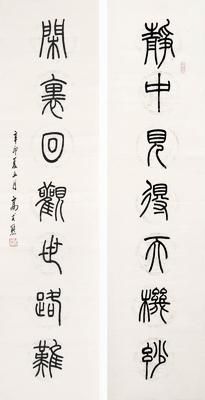 靜中見得天機妙
閑裏回觀世路難
辛卯夏五月